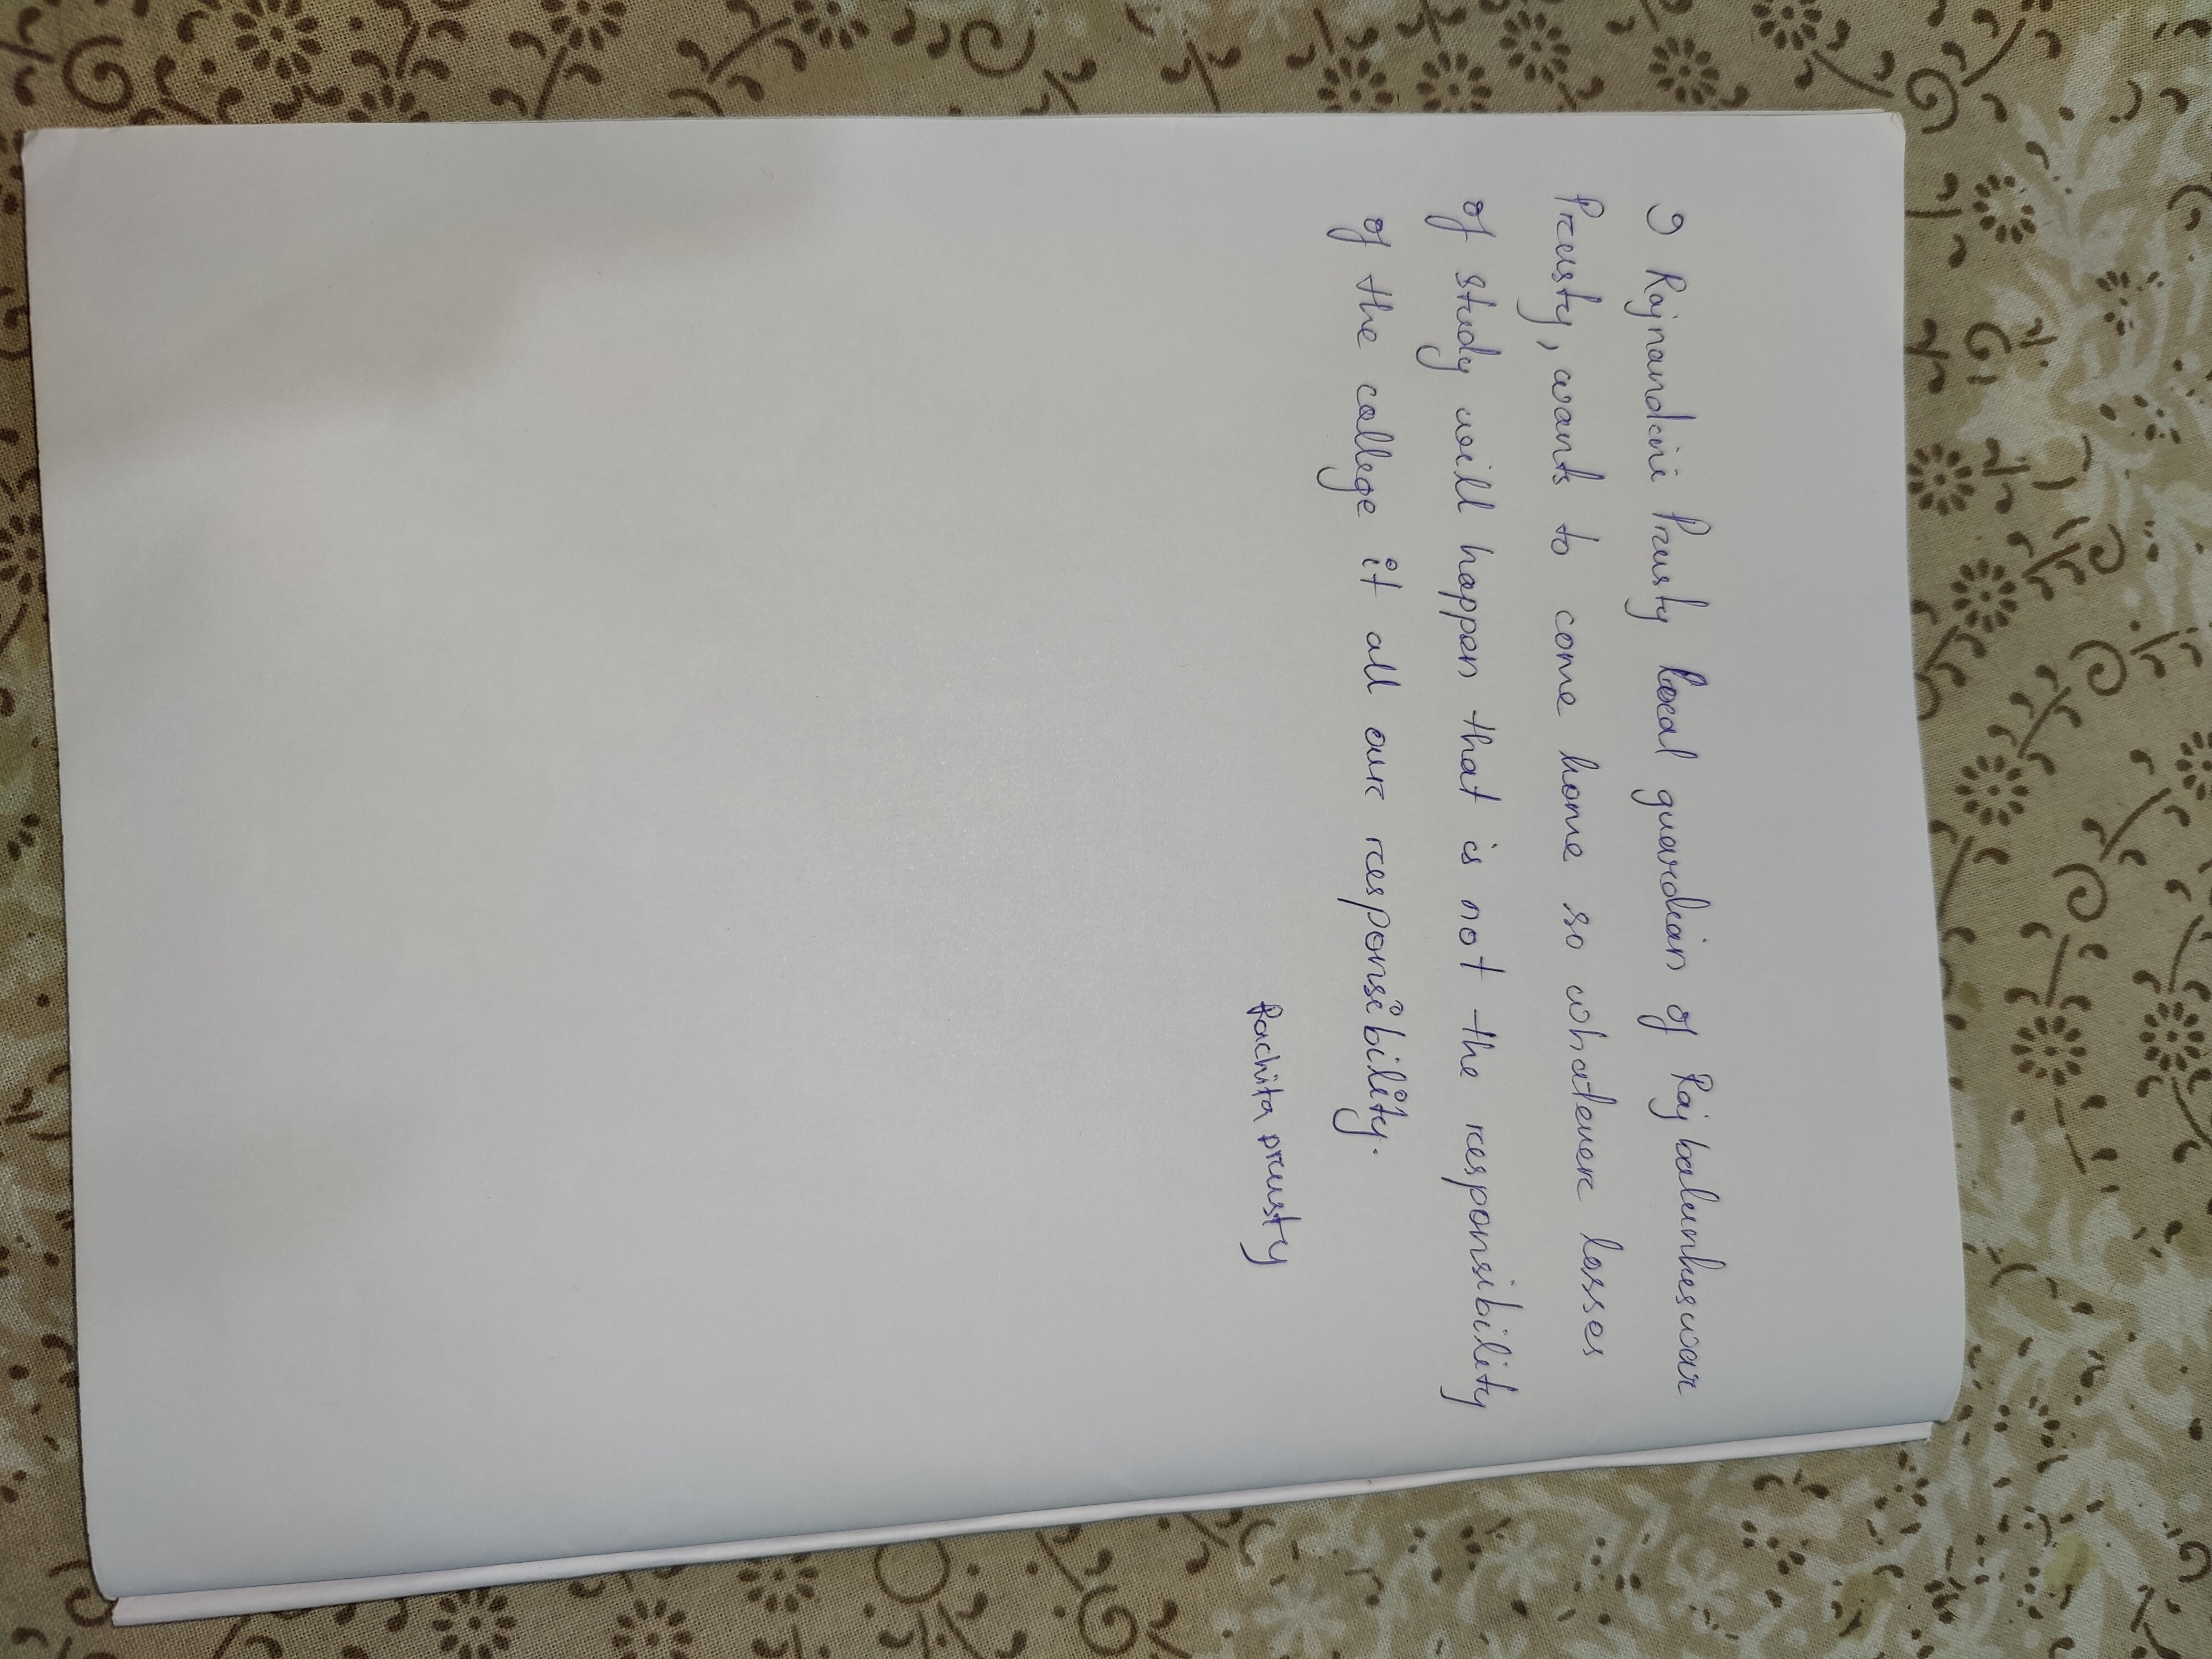 I Rajnandini Prusty local guardian of Rajbalunkeswar
Prusty, wants to come home so whatever losses
of study will happen that is not the responsibility
of the college it all our responsibility.
Rachita prusty